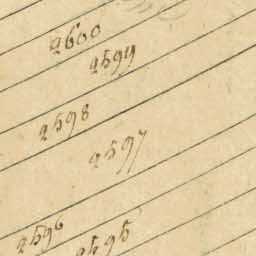 2600
2599
2598
2597
2596
2595